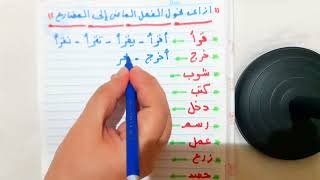 " إزاى نحول الفعل الماضى إلى المضارع "
قرأ ← أقرأ - يقرأ - تقرأ - نقرأ
خرج ← أخرج - يخر
شرب
كتب ←
دخل ←
رسم ←
عمل ←
زرع ←
حصد